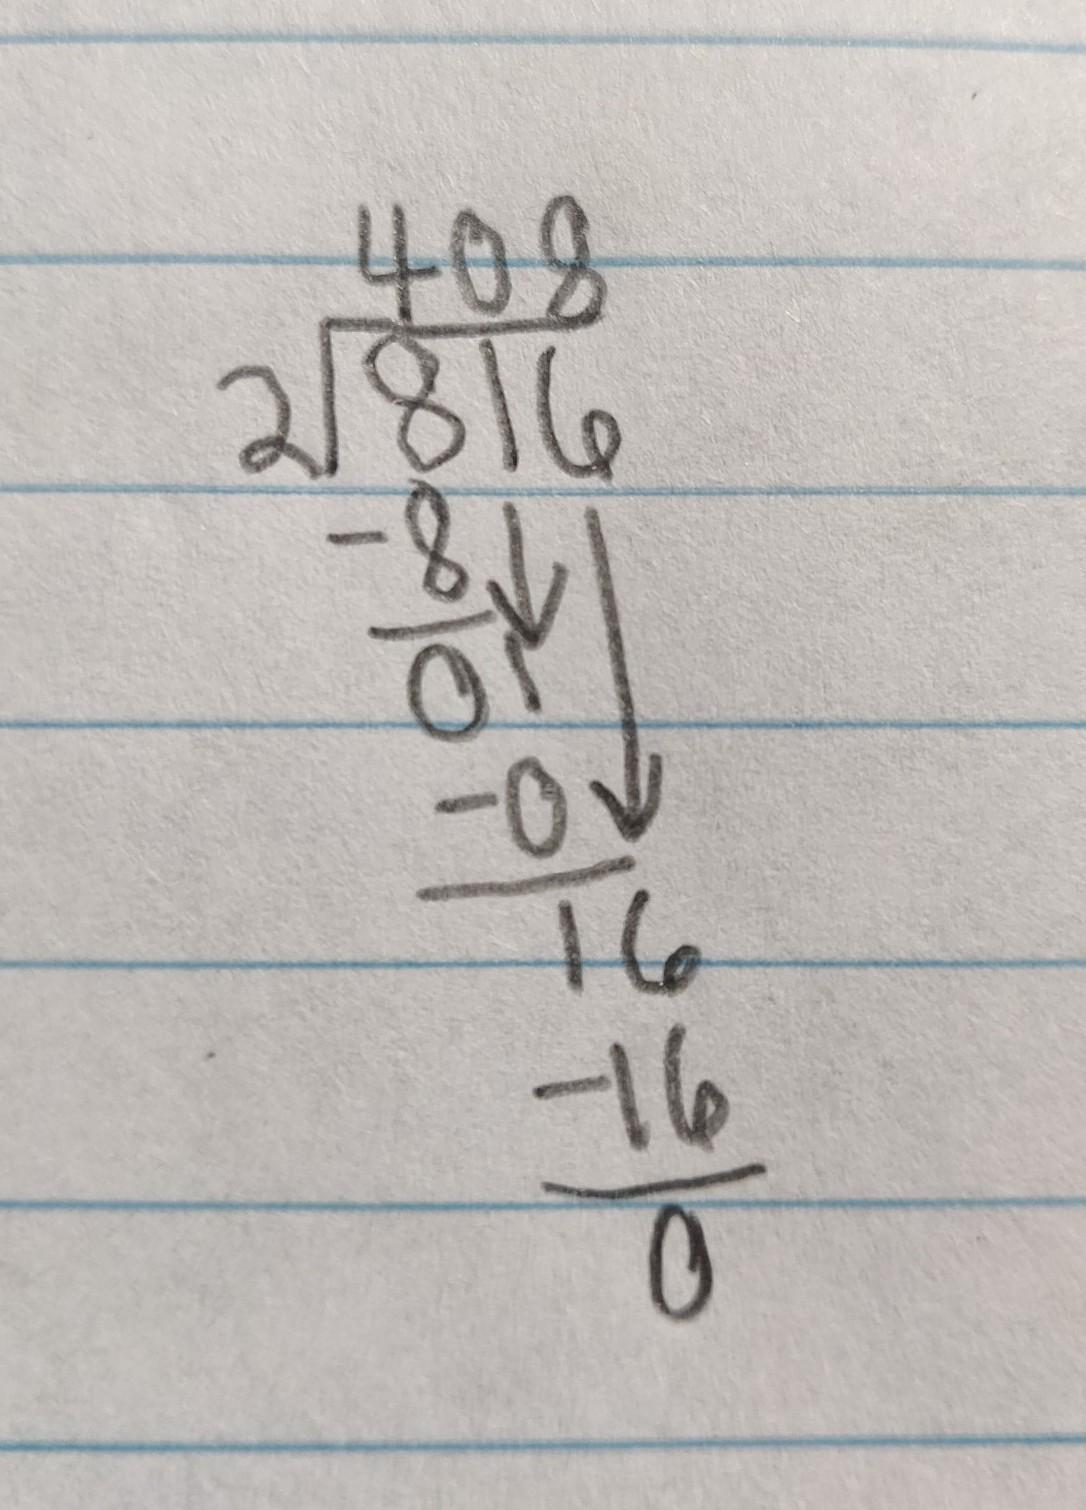 408
2√816
-8
01
-0
16
-16
0